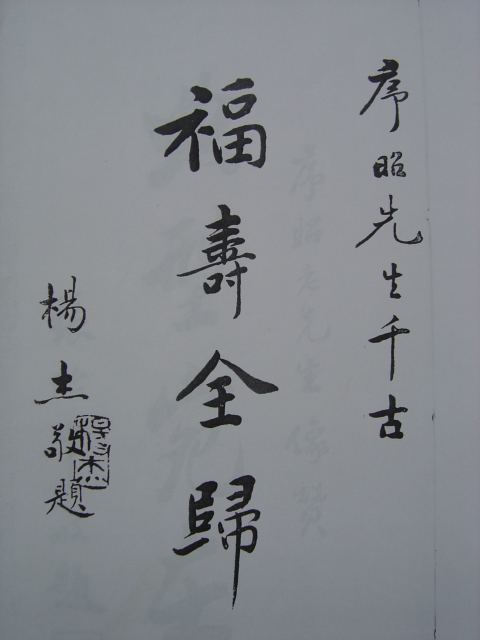 序昭先生千古
福壽全歸
楊杰敬題